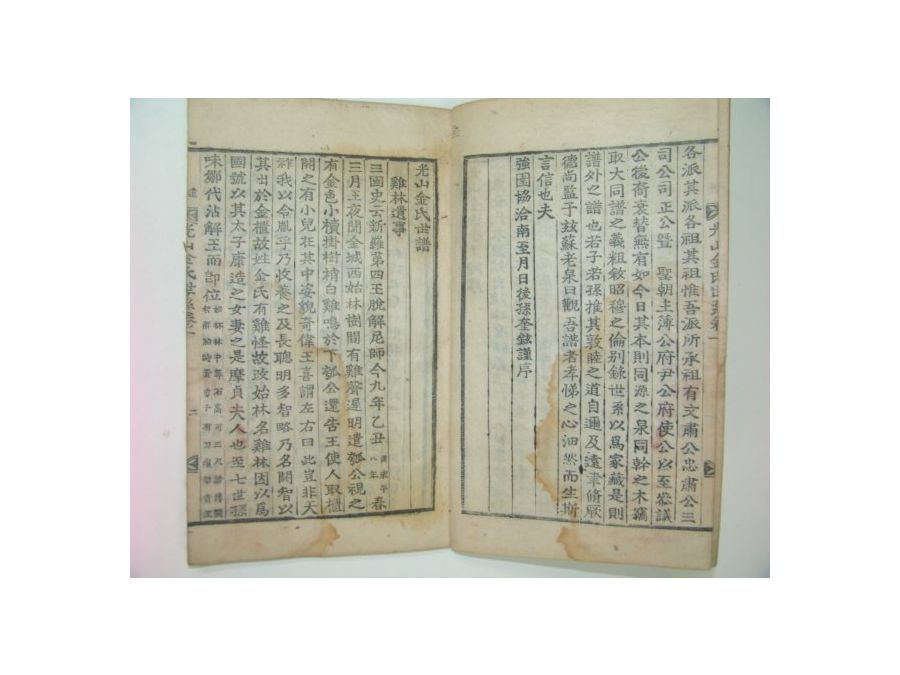 各派其派各祖其祖惟吾派所承祖有文肅公忠肅公三
司公司正公曁 聖朝主簿公府尹公府使公以至參議
公後裔衰替無有如今日其本則同源之泉同幹之木竊
取大同譜之義粗敘昭穆之倫別錄世系以爲家藏是則
譜外之譜也若子若孫推其敦睦之道自邇及遠聿脩厥
德尚監于玆蘇老泉曰觀吾譜者孝悌之心油然而生斯
言信也夫
強圉協洽南至月日後孫奎 謹序
光山金氏世譜
雞林遺事
三國史云新羅第四王脫解尼師今九年乙丑 漢永平八年 春
三月王夜聞金城西始林樹間有雞聲遲明遣瓠公視之
有金色小櫝掛樹梢白雞鳴於下瓠公還告王使人取櫃
開之有小兒在其中姿貌奇偉王喜謂左右曰此豈非天
祚我以令胤乎乃收養之及長聰明多智略乃名閼智以
其出於金櫃故姓金氏有雞怪故改始林名雞林因以爲
國號以其太子 造之女妻之是摩貞夫人也至七世孫
味鄒代沾解王而卽位 雞林中有石高可三尺
光山金氏世 卷一 二